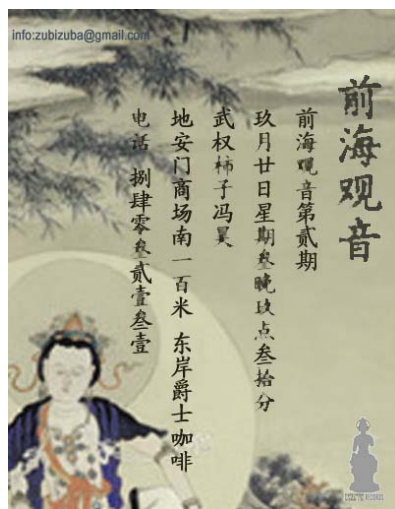 info:zubizuba@gmail.com
前海观音
前海观音第贰期
玖月廿日星期叁晚玖点叁拾分
武权柿子冯昊
地安门商场南一百米 东岸爵士咖啡
电话 捌肆零叁贰壹叁壹